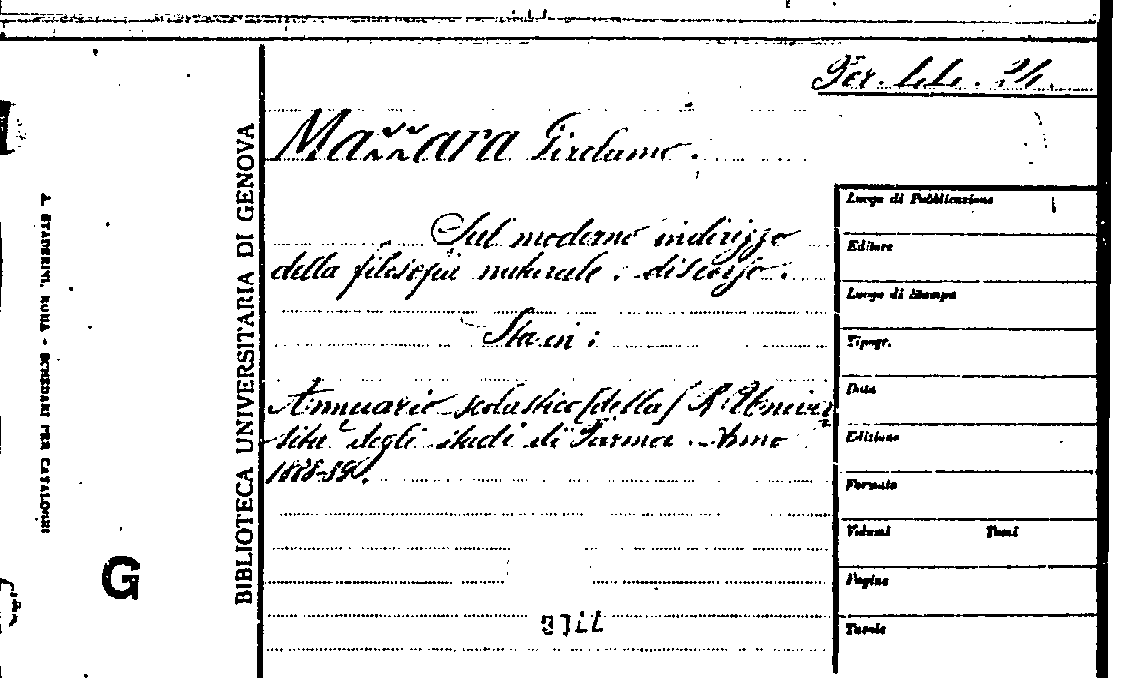 Per. l.l. 24.
Mazzara Girolamo.
Sul moderno indirizzo
della filosofia naturale: discorso.
Sta in:
Annuario scolastico [della] R. Univer
sità degli studi di Parma. Anno
BIBLIOTECA UNIVERSITARIA DI GENOVA
A. STADERINI, ROMA - SCHEDARI PER CATALOGHI
G
Luogo di Pubblicazione
Editore
Luogo di Stampa
Tipogr.
Data
Edizione
Formato
Volumi Tomi
Pagine
Tavole